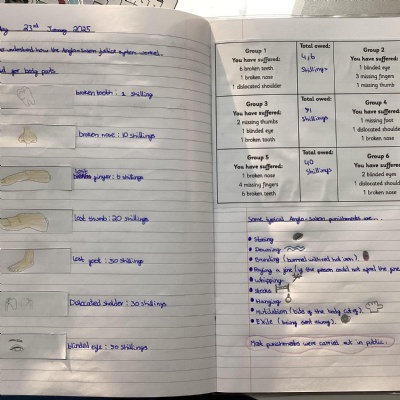 23rd January 2025
understand how the Anglo-Saxon justice system worked.
per body parts
broken tooth : 1 shilling
broken nose : 10 shillings
Lost
finger : 5 shillings
lost thumb : 20 shillings
lost foot : 50 shillings
Dislocated shoulder : 30 shillings
blinded eye : 50 shillings
Group 1
You have suffered:
6 broken teeth
1 broken nose
1 dislocated shoulder
Total owed:
46
Shillings
Group 2
You have suffered:
1 blinded eye
3 missing fingers
1 missing thumb
Group 3
You have suffered:
2 missing thumbs
1 blinded eye
1 broken tooth
Total owed:
91
shillings
Group 4
You have suffered:
1 missing foot
1 dislocated shoulder
1 broken nose
Group 5
You have suffered:
1 broken nose
4 missing fingers
6 broken teeth
Total owed:
40
shillings
Group 6
You have suffered:
2 blinded eyes
1 dislocated should
1 broken nose
Some typical Anglo-Saxon punishments were...
Stoning
Drowning
Branding (burned with red hot iron).
Paying a fine (if the person could not afford the fine
whipping
stocks
Hanging
Mutilation (bits of the body cut off).
Exile (being sent away).
Most punishments were carried out in public.